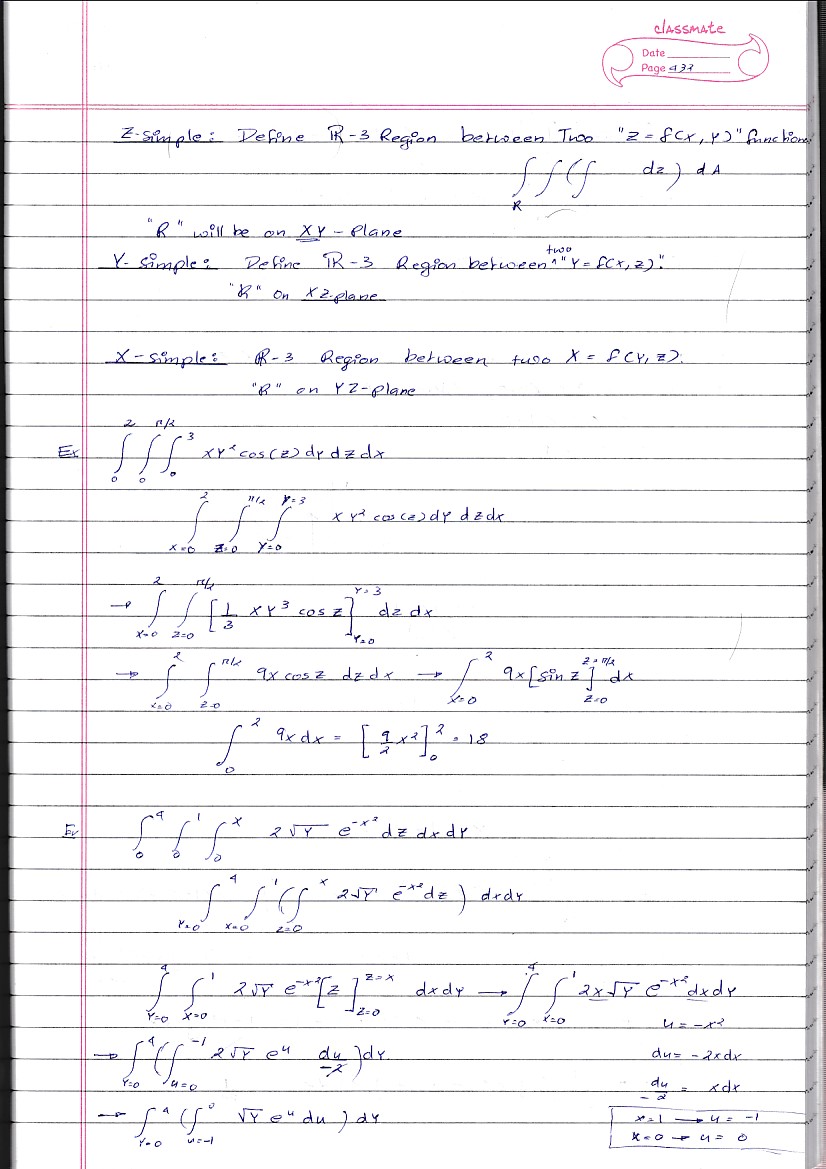 classmate
Date
Page 433
Z-simple: Define R-3 Region between Two "Z = f(x, y)" function
∫∫_R (∫ dz) dA
"R" will be on XY-Plane
Y-simple: Define R-3 Region between two "Y = f(x, z)."
"R" on XZ-plane
X-simple: R-3 Region between two X = f(Y, Z).
"R" on YZ-plane
Ex ∫_0^2 ∫_0^{π/2} ∫_0^3 xy² cos(z) dy dz dx
∫_{x=0}^2 ∫_{z=0}^{π/2} ∫_{y=0}^{y=3} xy² cos(z) dy dz dx
→ ∫_{x=0}^2 ∫_{z=0}^{π/2} [1/3 xy³ cos z]_{y=0}^{y=3} dz dx
→ ∫_{x=0}^2 ∫_{z=0}^{π/2} 9x cos z dz dx → ∫_{x=0}^2 9x [sin z]_{z=0}^{z=π/2} dx
∫_0^2 9x dx = [9/2 x²]_0^2 = 18
Ex ∫_0^4 ∫_0^1 ∫_0^x 2√y e^{-x²} dz dx dy
∫_{y=0}^4 ∫_{x=0}^1 (∫_{z=0}^x 2√y e^{-x²} dz) dx dy
∫_{y=0}^4 ∫_{x=0}^1 2√y e^{-x²} [z]_{z=0}^{z=x} dx dy → ∫_{y=0}^4 ∫_{x=0}^1 2x√y e^{-x²} dx dy
u = -x²
→ ∫_{y=0}^4 (∫_{u=0}^{-1} 2√y e^u du/-2) dy
du = -2x dx
du/-2 = x dx
→ ∫_{y=0}^4 (∫_{u=-1}^0 √y e^u du) dy
x=1 → u = -1
x=0 → u = 0